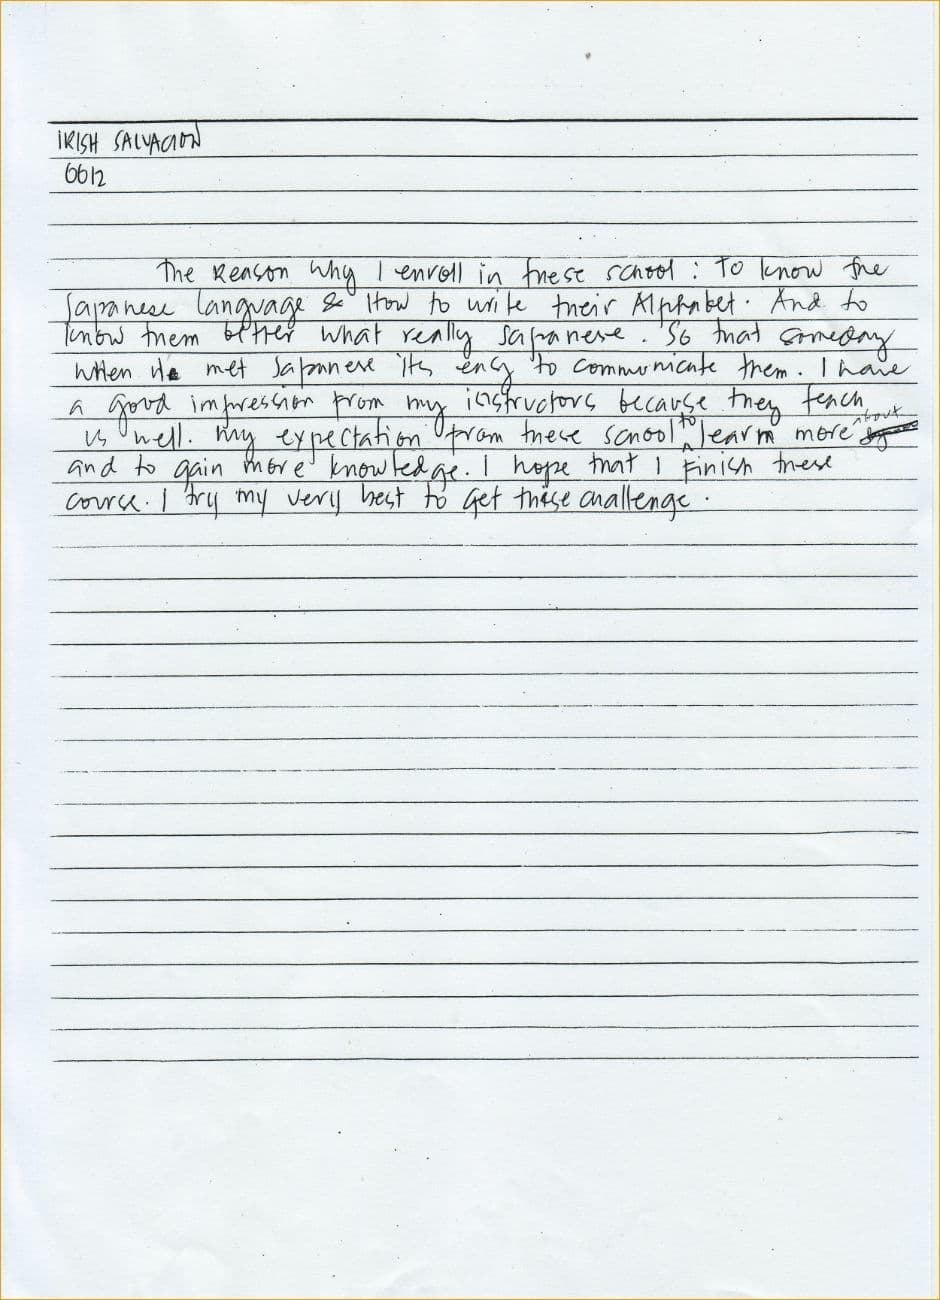 IRISH SALVACION
6612
The Reason Why I enroll in these school : To know the
Japanese language & How to write their Alphabet. And to
know them better what really Japanese. So that someday
when we met Japanese its easy to communicate them. I have
a good impression from my instructors because they teach
us well. My expectation from these school to learn more about
and to gain more knowledge. I hope that I Finish these
course. I try my very best to get these challenge.